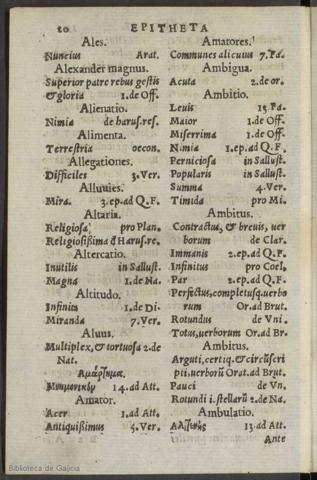 20 EPITHETA
Ales.
Nuncius Arat.
Alexander magnus.
Superior patre rebus gestis
& gloria 1.de Off.
Alienatio.
Nimia de harus.res.
Alimenta.
Terrestria oecon.
Allegationes.
Difficiles 3.Ver.
Alluuies.
Mira. 3.ep.ad Q.F.
Altaria.
Religiosa pro Plan.
Religiosissima đ Harus.re.
Altercatio.
Inutilis in Sallust.
Magna 1.de Na.
Altitudo.
Infinita 1.de Di.
Miranda 7.Ver.
Aluus.
Multiplex, & tortuosa 2.de
Nat.
Ἁμάρτημα.
Μνημονικὸν 14.ad Att.
Amator.
Acer 1.ad Att.
Antiquissimus 5.Ver.
Amatores.
Communes alicuius 7.Pa.
Ambigua.
Acuta 2.de or.
Ambitio.
Leuis 15.Fa.
Maior 1.de Off.
Miserrima 1.de Off.
Nimia 1.ep.ad Q.F.
Perniciosa in Sallust.
Popularis in Sallust.
Summa 4.Ver.
Timida pro Mi.
Ambitus.
Contractus, & breuis, uer
borum de Clar.
Immanis 2.ep.ad Q.F.
Infinitus pro Coel.
Par 2.ep.ad Q.F.
Perfectus, completusq. uerbo
rum Or.ad Brut.
Rotundus de Vni.
Totus, uerborum Or.ad Br.
Ambitus.
Arguti, certiq. & circũscri
pti. uerborũ Orat.ad Brut.
Pauci de Vn.
Rotundi i. stellarũ 2.de Na.
Ambulatio.
13.ad Att.
Ante
Biblioteca de Galicia